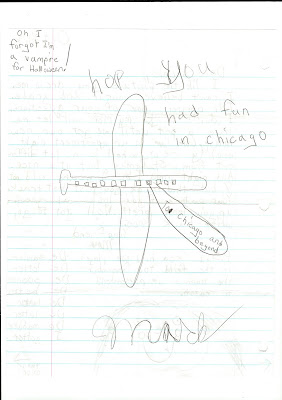 Oh I
forgot I'm
a vampire
for Halloween!
hop you
had fun
in chicago
To Chicago and
beyond